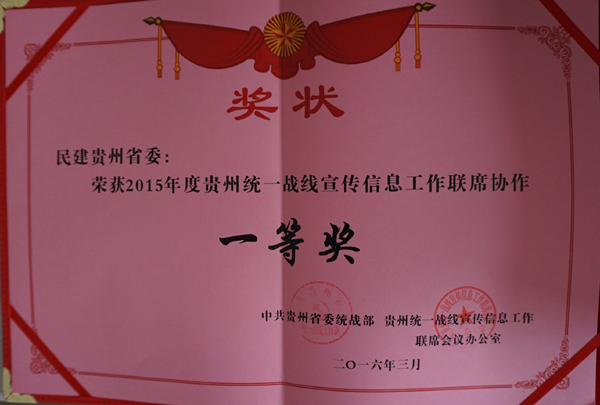 奖状
民建贵州省委：
荣获2015年度贵州统一战线宣传信息工作联席协作
一等奖
中共贵州省委统战部 贵州统一战线宣传信息工作
联席会议办公室
二〇一六年三月